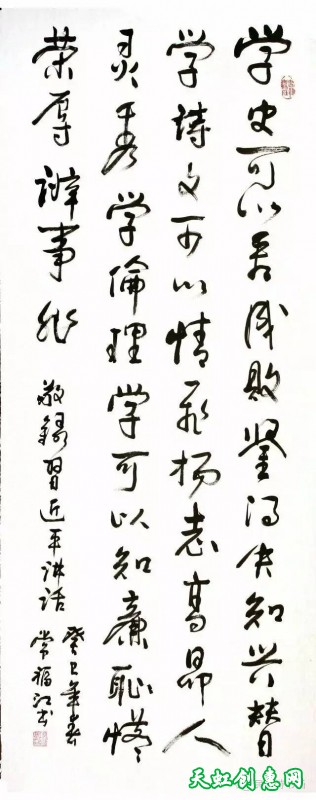 学史可以看成败鉴得失知兴替
学詩文可以情飛揚志高昂人
灵秀学倫理学可以知廉恥懂
荣辱辨事非 敬録習近平讲话
癸巳年春
常福江书
天虹创意网